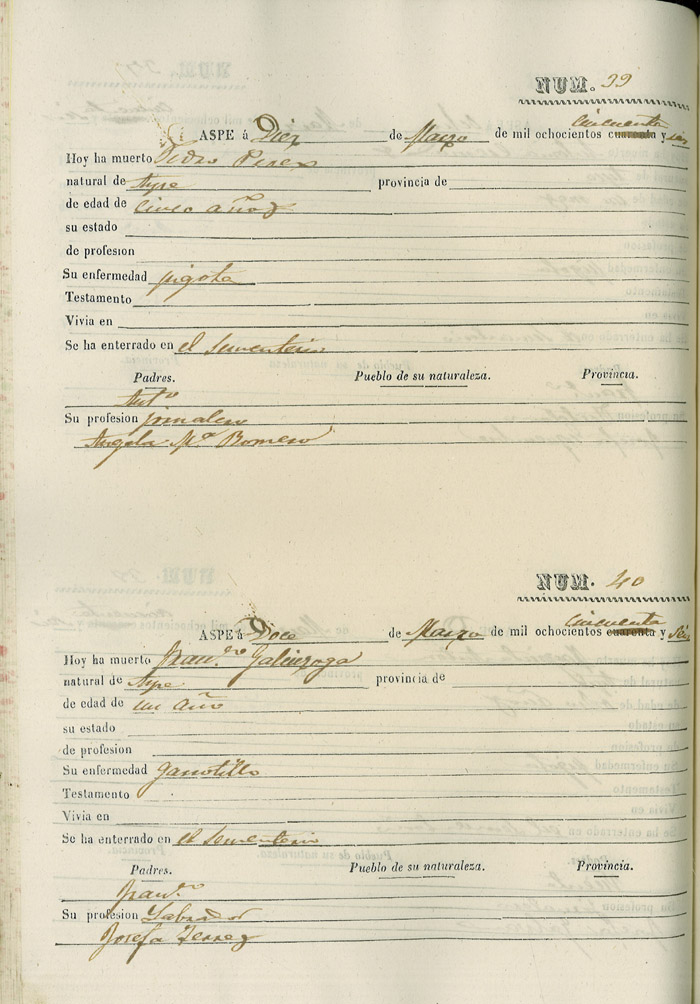 NUM. 39
ASPE á Diez de Marzo de mil ochocientos cuarenta cincuenta y seis
Hoy ha muerto Pedro Perez
natural de Aspe provincia de
de edad de cinco años
su estado
de profesion
Su enfermedad pigota
Testamento
Vivia en
Se ha enterrado en el sementerio
Padres. Pueblo de su naturaleza. Provincia.
Antº
Su profesion jornalero
Angela Mª Romero
NUM. 40
ASPE á Doce de Marzo de mil ochocientos cuarenta cincuenta y seis
Hoy ha muerto Franco Galinzoga
natural de Aspe provincia de
de edad de un año
su estado
de profesion
Su enfermedad garrotillo
Testamento
Vivia en
Se ha enterrado en el sementerio
Padres. Pueblo de su naturaleza. Provincia.
Franco
Su profesion Labrador
Josefa